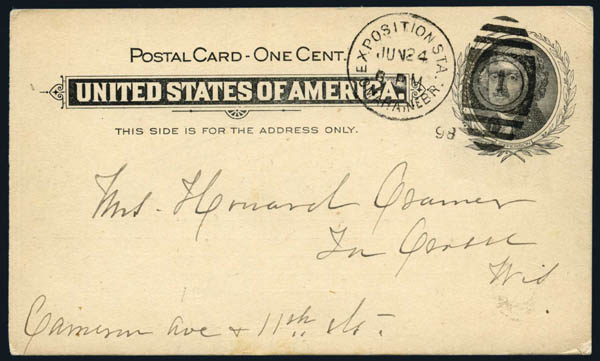 POSTAL CARD - ONE CENT.
UNITED STATES OF AMERICA.
THIS SIDE IS FOR THE ADDRESS ONLY.
EXPOSITION STA.
JUN 24
6 PM
OMAHA, NEBR.
98
1
Mrs. Howard Cramer
La Crosse
Wis
Cameron Ave & 11th St.